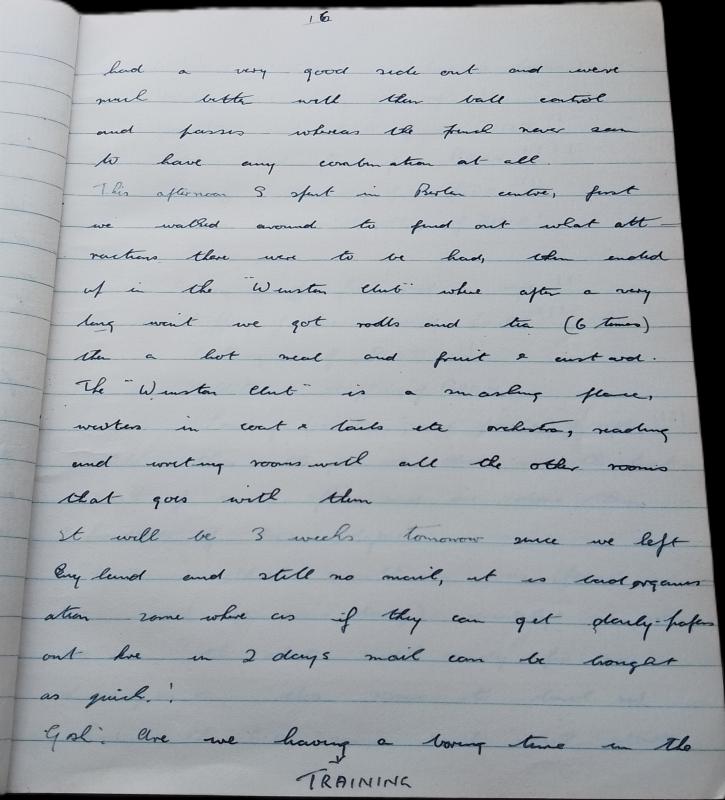 16
had a very good side out and were
much better with their ball control
and passes whereas the French never seem
to have any combination at all.
This afternoon I spent in Berlin centre, first
we walked around to find out what att-
ractions there were to be had, then ended
up in the "Winston Club" where after a very
long wait we got rolls and tea (6 times)
then a hot meal and fruit & custard.
The "Winston Club" is a smashing place,
waiters in coat & tails etc orchestra, reading
and writing rooms with all the other rooms
that goes with them
It will be 3 weeks tomorrow since we left
England and still no mail, it is bad organis
ation some where as if they can get daily-papers
out here in 2 days mail can be bought
as quick.!
Gosh! Are we having a boring time in the
TRAINING